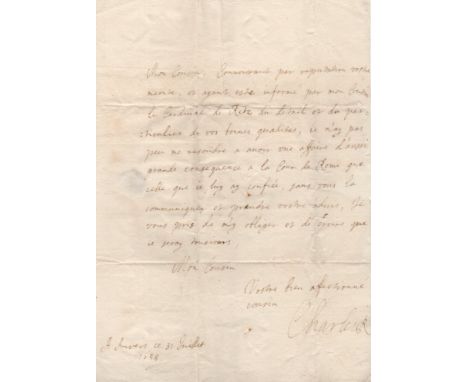 Mon Cousin, Connoissant par reputation vostre
merite, et ayant esté informé par mon Cousin
le Cardinal de Retz du detail et du par-
ticulier de vos bonnes qualités, je n'ay pas
peu me resoudre a avoir une affaire d'aussi
grande consequence a la Cour de Rome que
celle que je luy ay confiée, sans vous la
communiquer et prendre vostre advis, Je
vous prie de m'y obliger et de croire que
je seray tousiours
Mon Cousin
Vostre bien affectionné
cousin
Charles R
A Anvers ce 31 Juillet
1658